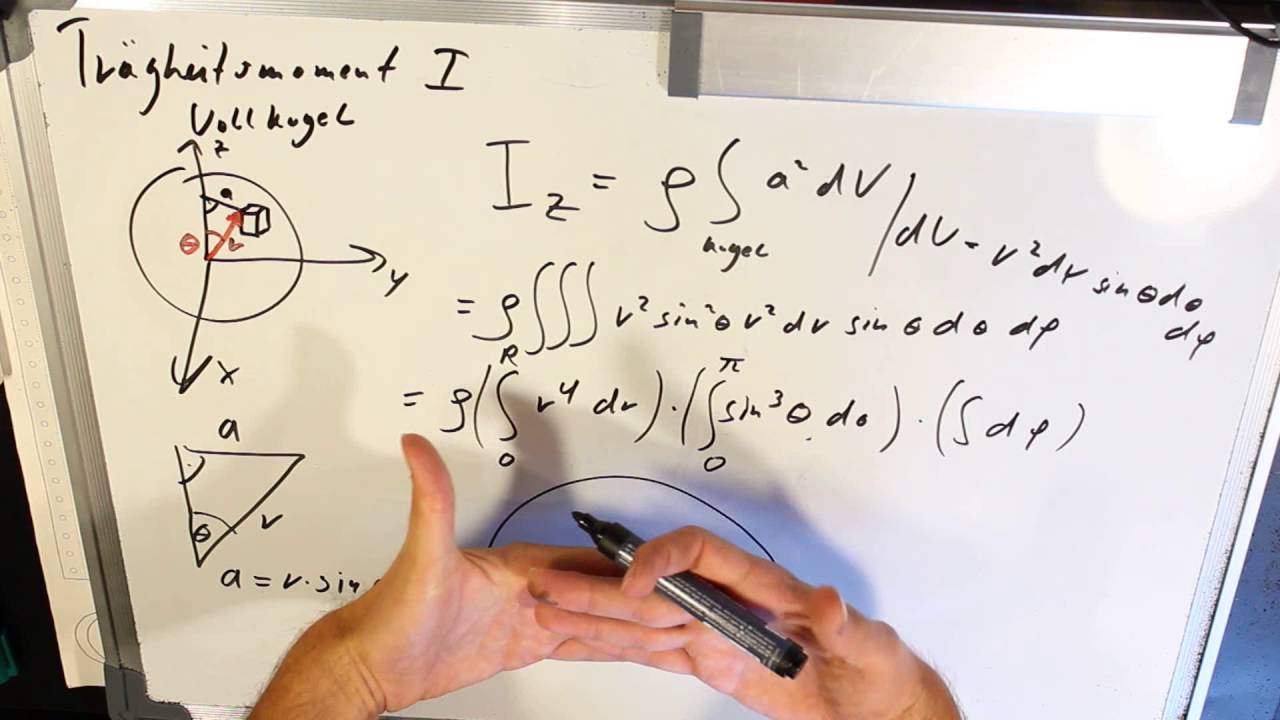 Trägheitsmoment I
Vollkugel
z
a
θ r
y
x
I_z = ρ ∫_Kugel a² dV / dV = r² dr sin θ dθ dφ
= ρ ∭ r² sin² θ r² dr sin θ dθ dφ
= ρ (∫_0^R r⁴ dr) · (∫_0^π sin³ θ dθ) · (∫ dφ)
a
θ r
a = r · sin